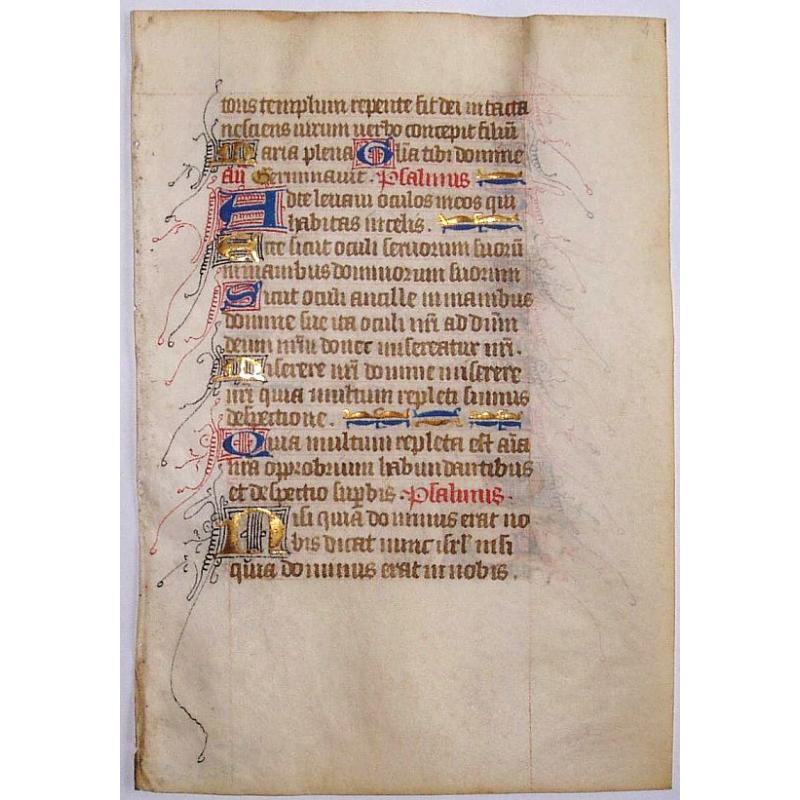 toris templum repente fit dei intacta
nesciens uirum uerbo concepit filiū
Maria plena Glīa tibi domine
añ Germinauit. Psalmus
Ad te leuaui oculos meos qui
habitas in celis.
Ecce sicut oculi seruorum suorū
in manibus dominorum suorum
Sicut oculi ancille in manibus
domine sue ita oculi nr̄i ad dūm
deum nr̄m donec misereatur nr̄i.
Miserere nr̄i domine miserere
nr̄i quia multum repleti sumus
despectione.
Quia multum repleta est aīa
nr̄a opprobrium habundantibus
et despectio supbis. Psalmus.
Nisi quia dominus erat in no
bis dicat nunc isrl̄ nisi
quia dominus erat in nobis.